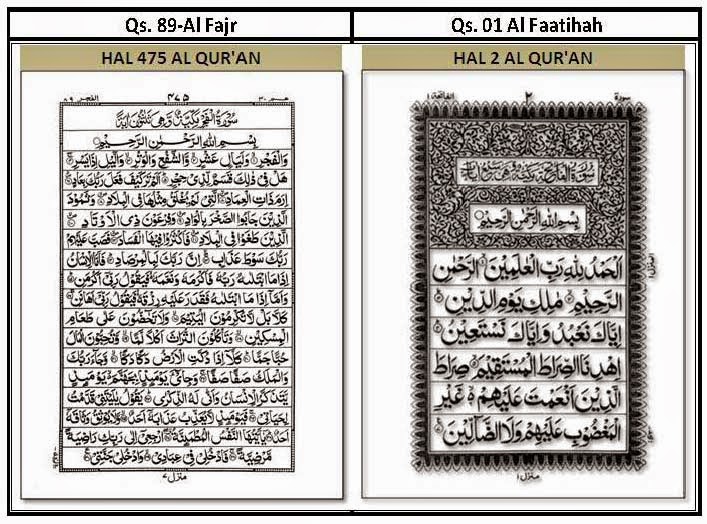 Qs. 89-Al Fajr
HAL 475 AL QUR'AN
عم ٣٠ ٤٧٥ الفجر ٨٩
سُوْرَةُ الْفَجْرِ مَكِّيَّةٌ وَّهِىَ ثَلٰثُوْنَ اٰيَةً
بِسْمِ اللّٰهِ الرَّحْمٰنِ الرَّحِيْمِ
وَالْفَجْرِ وَلَيَالٍ عَشْرٍ وَّالشَّفْعِ وَالْوَتْرِ وَالَّيْلِ اِذَا يَسْرِ
هَلْ فِىْ ذٰلِكَ قَسَمٌ لِّذِىْ حِجْرٍ اَلَمْ تَرَ كَيْفَ فَعَلَ رَبُّكَ بِعَادٍ
اِرَمَ ذَاتِ الْعِمَادِ الَّتِىْ لَمْ يُخْلَقْ مِثْلُهَا فِى الْبِلَادِ وَثَمُوْدَ
الَّذِيْنَ جَابُوا الصَّخْرَ بِالْوَادِ وَفِرْعَوْنَ ذِى الْاَوْتَادِ
الَّذِيْنَ طَغَوْا فِى الْبِلَادِ فَاَكْثَرُوْا فِيْهَا الْفَسَادَ فَصَبَّ عَلَيْهِمْ
رَبُّكَ سَوْطَ عَذَابٍ اِنَّ رَبَّكَ لَبِالْمِرْصَادِ فَاَمَّا الْاِنْسَانُ
اِذَا مَا ابْتَلٰىهُ رَبُّهٗ فَاَكْرَمَهٗ وَنَعَّمَهٗ فَيَقُوْلُ رَبِّىْ اَكْرَمَنِ
وَاَمَّا اِذَا مَا ابْتَلٰىهُ فَقَدَرَ عَلَيْهِ رِزْقَهٗ فَيَقُوْلُ رَبِّىْ اَهَانَنِ
كَلَّا بَلْ لَّا تُكْرِمُوْنَ الْيَتِيْمَ وَلَا تَحٰضُّوْنَ عَلٰى طَعَامِ
الْمِسْكِيْنِ وَتَاْكُلُوْنَ التُّرَاثَ اَكْلًا لَّمًّا وَّتُحِبُّوْنَ الْمَالَ
حُبًّا جَمًّا كَلَّا اِذَا دُكَّتِ الْاَرْضُ دَكًّا دَكًّا وَّجَآءَ رَبُّكَ
وَالْمَلَكُ صَفًّا صَفًّا وَجِاىْٓءَ يَوْمَئِذٍۢ بِجَهَنَّمَ يَوْمَئِذٍ
يَّتَذَكَّرُ الْاِنْسَانُ وَاَنّٰى لَهُ الذِّكْرٰى يَقُوْلُ يٰلَيْتَنِىْ قَدَّمْتُ
لِحَيَاتِىْ فَيَوْمَئِذٍ لَّا يُعَذِّبُ عَذَابَهٗٓ اَحَدٌ وَّلَا يُوْثِقُ وَثَاقَهٗٓ
اَحَدٌ يٰٓاَيَّتُهَا النَّفْسُ الْمُطْمَئِنَّةُ ارْجِعِىْٓ اِلٰى رَبِّكِ رَاضِيَةً
مَّرْضِيَّةً فَادْخُلِىْ فِىْ عِبٰدِىْ وَادْخُلِىْ جَنَّتِىْ
منزل ٧
Qs. 01 Al Faatihah
HAL 2 AL QUR'AN
سورة ٢ الفاتحة ١
سُوْرَةُ الْفَاتِحَةِ مَكِّيَّةٌ وَّهِىَ سَبْعُ اٰيَاتٍ
بِسْمِ اللّٰهِ الرَّحْمٰنِ الرَّحِيْمِ
اَلْحَمْدُ لِلّٰهِ رَبِّ الْعٰلَمِيْنَ الرَّحْمٰنِ
الرَّحِيْمِ مٰلِكِ يَوْمِ الدِّيْنِ
اِيَّاكَ نَعْبُدُ وَاِيَّاكَ نَسْتَعِيْنُ
اِهْدِنَا الصِّرَاطَ الْمُسْتَقِيْمَ صِرَاطَ
الَّذِيْنَ اَنْعَمْتَ عَلَيْهِمْ غَيْرِ
الْمَغْضُوْبِ عَلَيْهِمْ وَلَا الضَّآلِّيْنَ
منزل ١